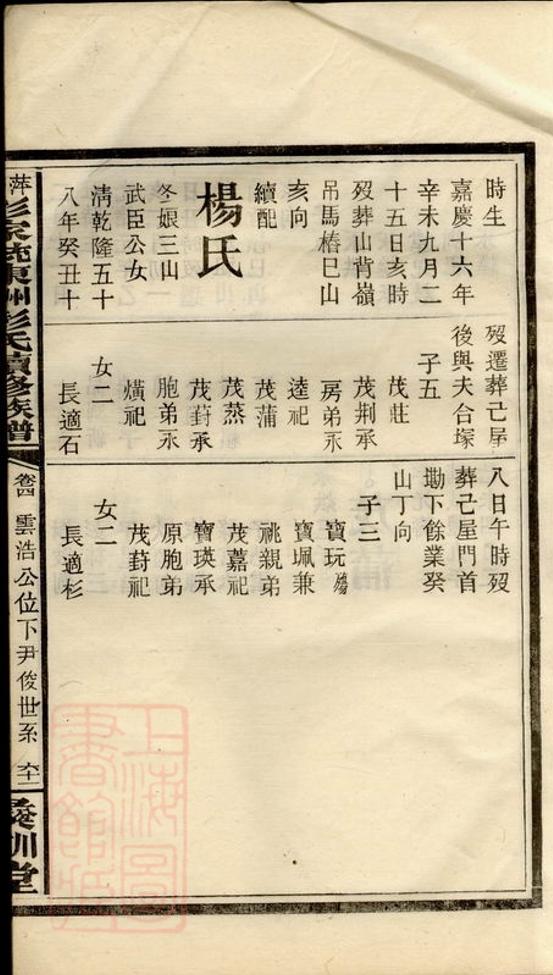 時生
嘉慶十六年
辛未九月二
十五日亥時
歿葬山背嶺
吊馬樁巳山
亥向
續配
楊氏
冬娘三山
武臣公女
清乾隆五十
八年癸丑十
歿遷葬己屋
後與夫合塚
子五
茂莊
茂荆承
房弟永
逵祀
茂蒲
茂蒸
茂葑承
胞弟永
熿祀
女二
長適石
八日午時歿
葬己屋門首
墈下餘業癸
山丁向
子三
寶玩殤
寶珮兼
祧親弟
茂嘉祀
寶瑛承
原胞弟
茂葑祀
女二
長適杉
萍 彭氏續修族譜
卷四 雲浩公位下尹俊世系 六十二
訓堂
上海圖書館藏